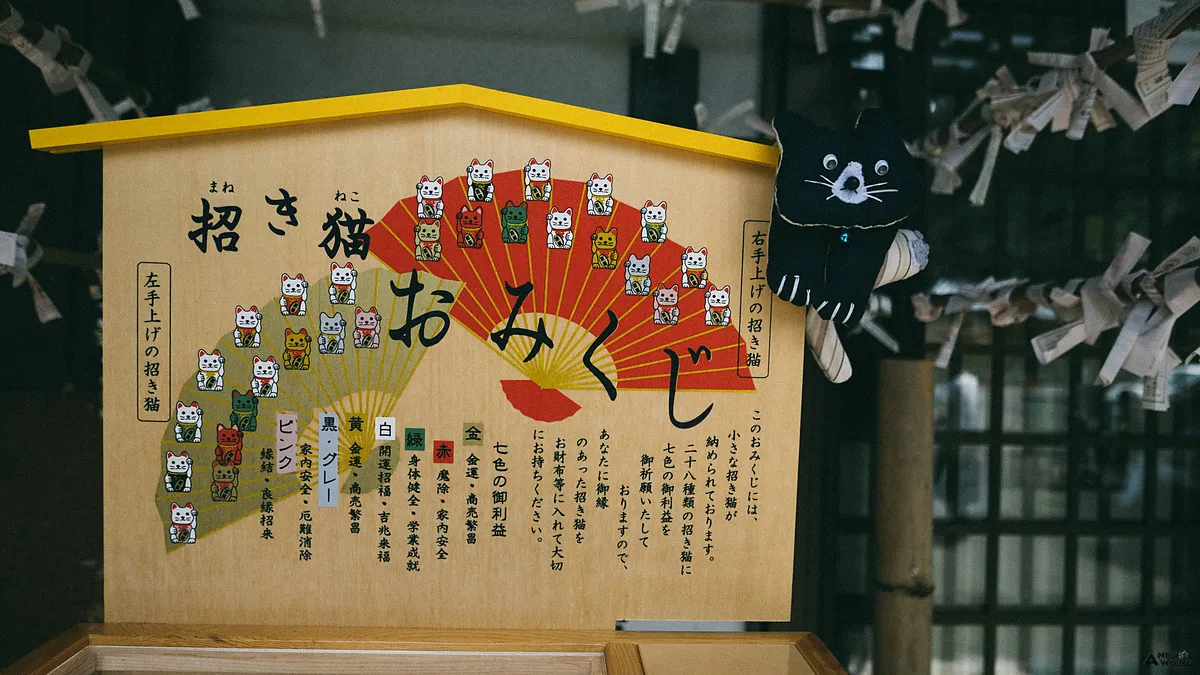 招き猫
まね
ねこ
おみくじ
右手上げの招き猫
左手上げの招き猫
このおみくじには、
小さな招き猫が
納められております。
二十八種類の招き猫に
七色の御利益を
御祈願いたして
おりますので、
あなたに御縁
のあった招き猫を
お財布等に入れて大切
にお持ちください。
七色の御利益
金 金運・商売繁昌
赤 魔除・家内安全
緑 身体健全・学業成就
白 開運招福・吉兆来福
黄 金運・商売繁昌
黒・グレー 家内安全・厄難消除
ピンク 縁結・良縁招来
A NEW WORLD